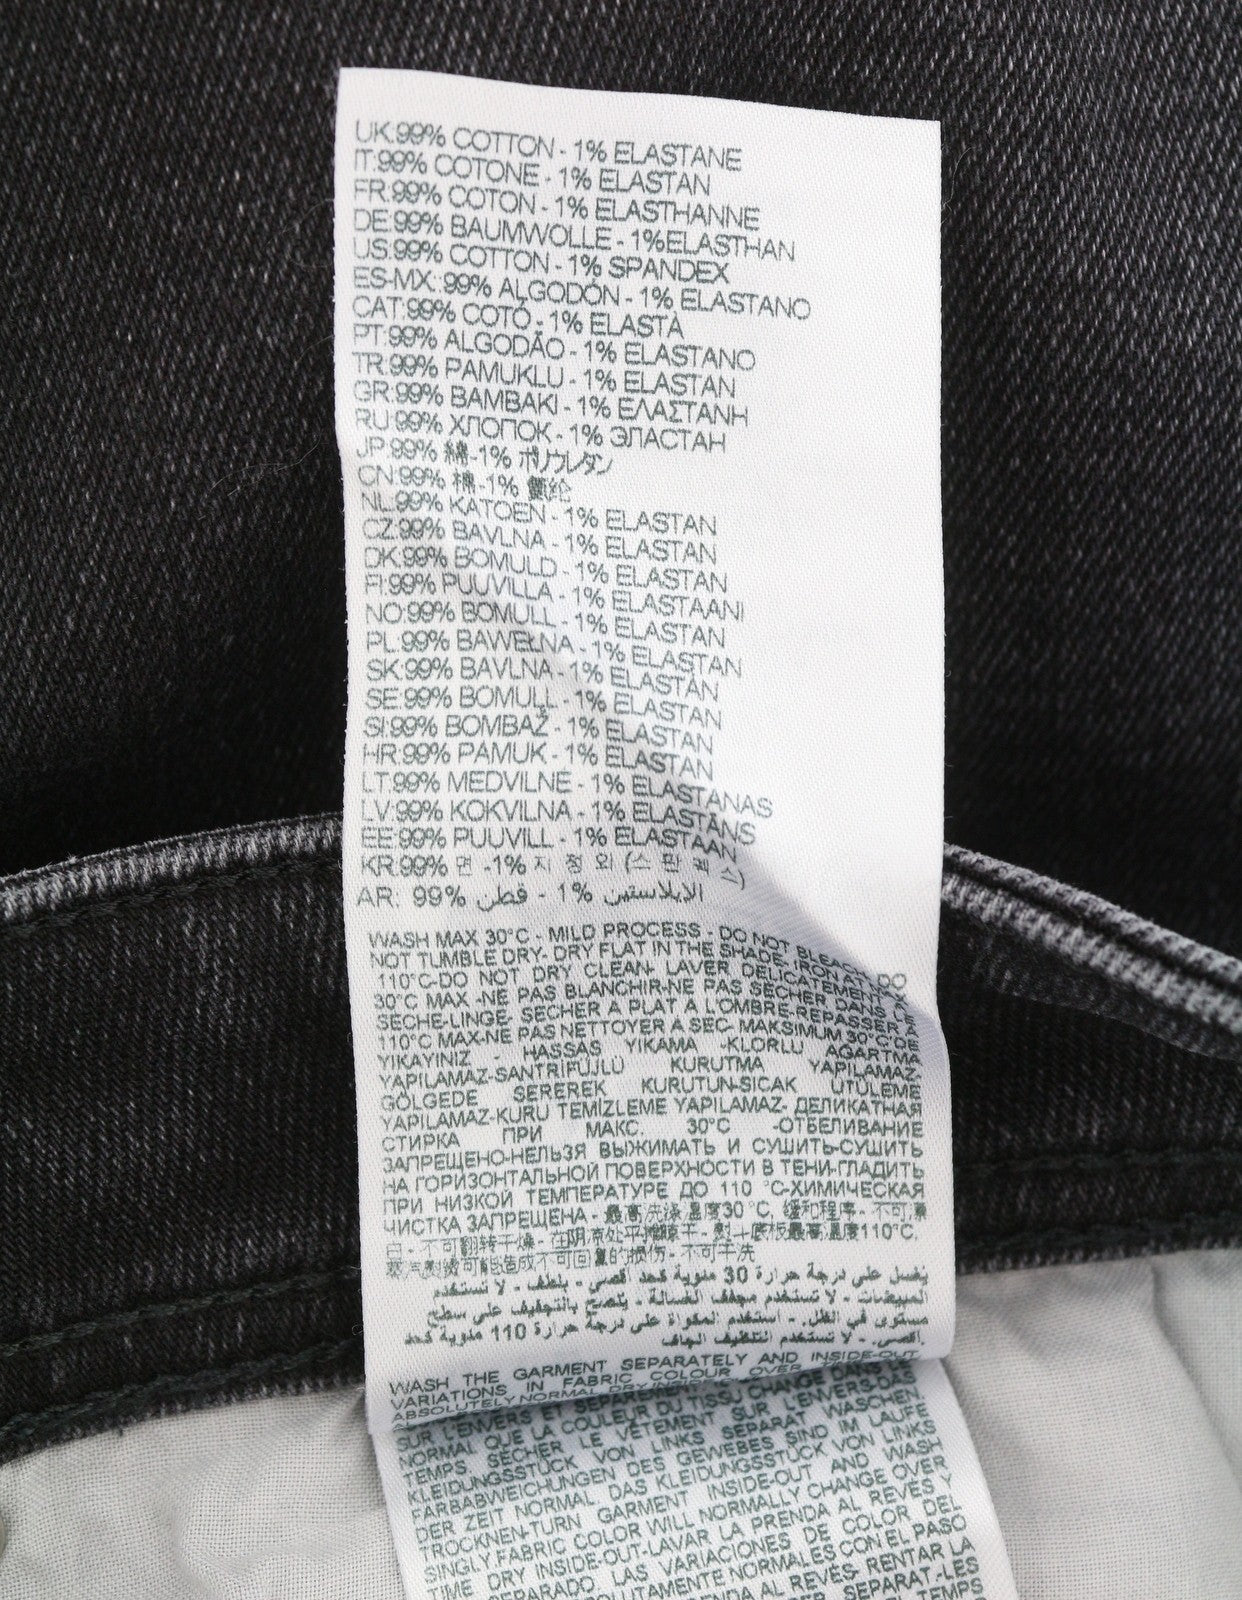 UK:99% COTTON - 1% ELASTANE
IT:99% COTONE - 1% ELASTAN
FR:99% COTON - 1% ELASTHANNE
DE:99% BAUMWOLLE - 1%ELASTHAN
US:99% COTTON - 1% SPANDEX
ES-MX:99% ALGODÓN - 1% ELASTANO
CAT:99% COTÓ - 1% ELASTÀ
PT:99% ALGODÃO - 1% ELASTANO
TR:99% PAMUKLU - 1% ELASTAN
GR:99% BAMBAKI - 1% ΕΛΑΣΤΑΝΗ
RU:99% ХЛОПОК - 1% ЭЛАСТАН
JP:99% 綿-1% ポリウレタン
CN:99% 棉-1% 氨纶
NL:99% KATOEN - 1% ELASTAN
CZ:99% BAVLNA - 1% ELASTAN
DK:99% BOMULD - 1% ELASTAN
FI:99% PUUVILLA - 1% ELASTAANI
NO:99% BOMULL - 1% ELASTAN
PL:99% BAWEŁNA - 1% ELASTAN
SK:99% BAVLNA - 1% ELASTAN
SE:99% BOMULL - 1% ELASTAN
SI:99% BOMBAŽ - 1% ELASTAN
HR:99% PAMUK - 1% ELASTAN
LT:99% MEDVILNE - 1% ELASTANAS
LV:99% KOKVILNA - 1% ELASTĀNS
EE:99% PUUVILL - 1% ELASTAAN
KR:99% 면 -1% 지 정 외 (스 판 덱 스)
AR: 99% قطن - 1% الايلاستين
WASH MAX 30°C - MILD PROCESS - DO NOT BLEACH- DO
NOT TUMBLE DRY- DRY FLAT IN THE SHADE- IRON AT MAX
110°C-DO NOT DRY CLEAN- LAVER DELICATEMENT A
30°C MAX -NE PAS BLANCHIR-NE PAS SECHER DANS LE
SECHE-LINGE- SECHER A PLAT A L'OMBRE-REPASSER LA
110°C MAX-NE PAS NETTOYER A SEC- MAKSIMUM 30°C'DE
YIKAYINIZ - HASSAS YIKAMA -KLORLU AĞARTMA
YAPILAMAZ-SANTRİFÜJLÜ KURUTMA YAPILAMAZ-
GÖLGEDE SEREREK KURUTUN-SICAK ÜTÜLEME
YAPILAMAZ-KURU TEMİZLEME YAPILAMAZ- ДЕЛИКАТНАЯ
СТИРКА ПРИ МАКС. 30°C -ОТБЕЛИВАНИЕ
ЗАПРЕЩЕНО-НЕЛЬЗЯ ВЫЖИМАТЬ И СУШИТЬ-СУШИТЬ
НА ГОРИЗОНТАЛЬНОЙ ПОВЕРХНОСТИ В ТЕНИ-ГЛАДИТЬ
ПРИ НИЗКОЙ ТЕМПЕРАТУРЕ ДО 110 °C-ХИМИЧЕСКАЯ
ЧИСТКА ЗАПРЕЩЕНА - 最高洗涤温度30°C, 缓和程序 - 不可漂
白 - 不可翻转干燥 - 在阴凉处平摊晾干 - 熨斗底板最高温度110°C,
蒸汽熨烫可能造成不可回复的损伤 - 不可干洗
يغسل على درجة حرارة 30 مئوية كحد أقصى - بلطف - لا تستخدم
المبيضات - لا تستخدم مجفف الغسالة - ينصح بالتجفيف على سطح
مستوى في الظل - استخدم المكواة على درجة حرارة 110 مئوية كحد
أقصى. - لا تستخدم التنظيف الجاف.
WASH THE GARMENT SEPARATELY AND INSIDE-OUT
VARIATIONS IN FABRIC COLOUR OVER
ABSOLUTELY NORMAL DRY INSIDE
SUR L'ENVERS ET
NORMAL QUE LA COULEUR DU TISSU CHANGE DANS
TEMPS SÉCHER LE VÊTEMENT SUR L'ENVERS-DAS
KLEIDUNGSSTÜCK VON LINKS SEPARAT WASCHEN.
FARBABWEICHUNGEN DES GEWEBES SIND IM LAUFE
DER ZEIT NORMAL. DAS KLEIDUNGSSTÜCK VON LINKS
TROCKNEN-TURN GARMENT INSIDE-OUT AND WASH
SINGLY FABRIC COLOR WILL NORMALLY CHANGE OVER
TIME DRY INSIDE-OUT-LAVAR LA PRENDA AL REVÉS Y
SEPARADO. LAS VARIACIONES DE COLOR DEL
ABSOLUTAMENTE NORMALES CON EL PASO
PRENDA AL REVÉS- RENTAR LA
SEPARAT.-LES
TEMPS